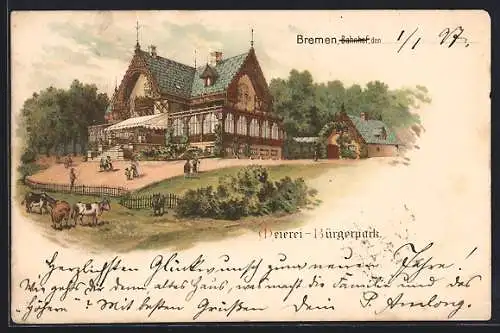 Bremen, Bahnhof, den 1/1 97.
Meierei-Bürgerpark.
Herzlichsten Glückwunsch zum neuen Jahre!
Wie geht's dir denn altes Haus, was macht die Familie und das
"Höfern"? Mit besten Grüßen Dein P. Amlong.